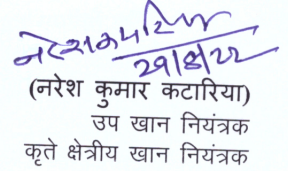 29/8/22
(नरेश कुमार कटारिया)
उप खान नियंत्रक
कृते क्षेत्रीय खान नियंत्रक